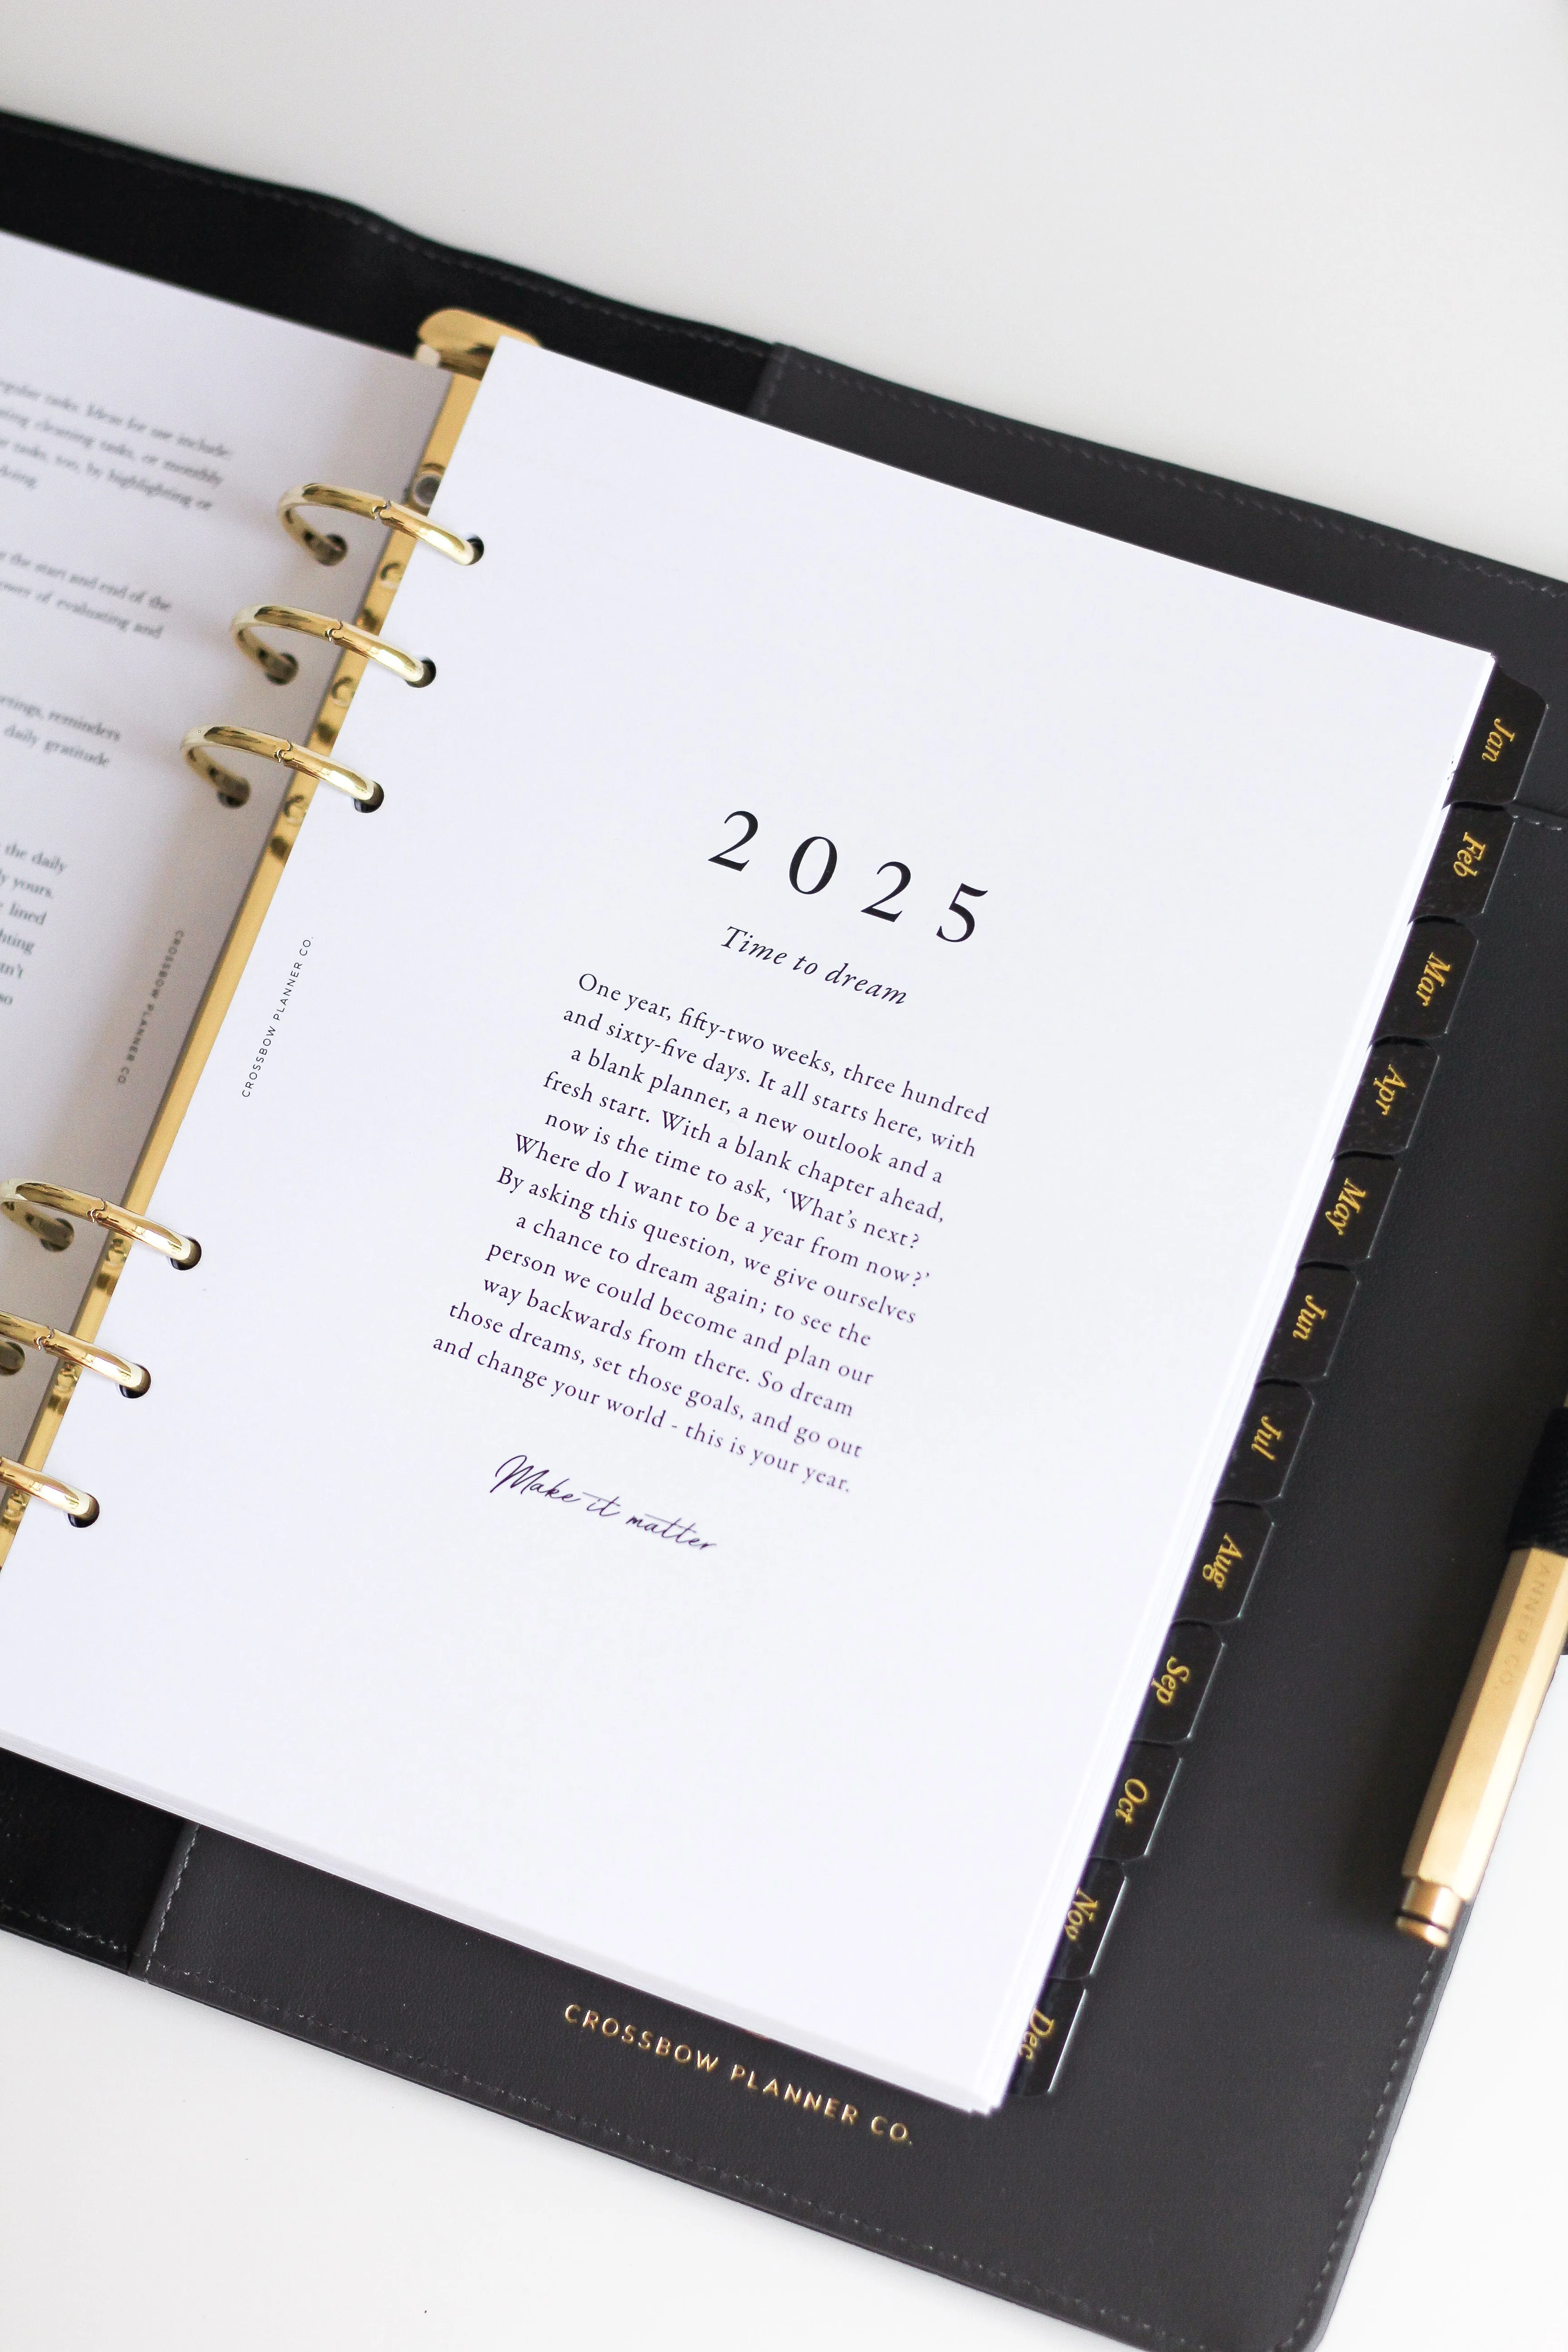 regular tasks. Ideas for use include:
cleaning tasks, or monthly
tasks, too, by highlighting or
the start and end of the
of evaluating and
reminders
daily gratitude
the daily
yours.
lined
so
CROSSBOW PLANNER CO.
CROSSBOW PLANNER CO.
2025
Time to dream
One year, fifty-two weeks, three hundred
and sixty-five days. It all starts here, with
a blank planner, a new outlook and a
fresh start. With a blank chapter ahead,
now is the time to ask, ‘What’s next?
Where do I want to be a year from now?’
By asking this question, we give ourselves
a chance to dream again; to see the
person we could become and plan our
way backwards from there. So dream
those dreams, set those goals, and go out
and change your world - this is your year.
Make it matter
Jan
Feb
Mar
Apr
May
Jun
Jul
Aug
Sep
Oct
Nov
Dec
ANNER CO.
CROSSBOW PLANNER CO.